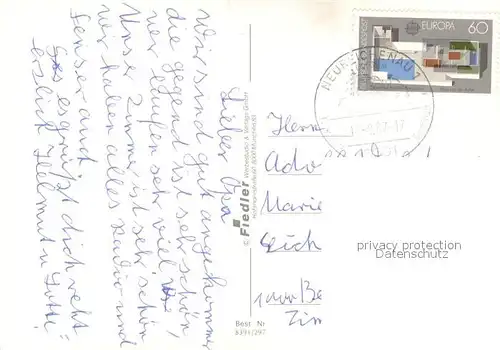 Lieber Opa
Wir sind gut angekommen
die gegend ist sehr schön,
wir laufen sehr viel
Unser Zimmer ist sehr schön
wir haben alles Radio und
Fernseher und
es grüßt dich recht
erzlich Helmut u Lotti!
© Fiedler Werbestudio & Verlags GmbH
Best Nr
8391/297
EUROPA 60
NEUREICHENAU
Herrn
Marie
1000 Be
Zim
privacy protection
Datenschutz